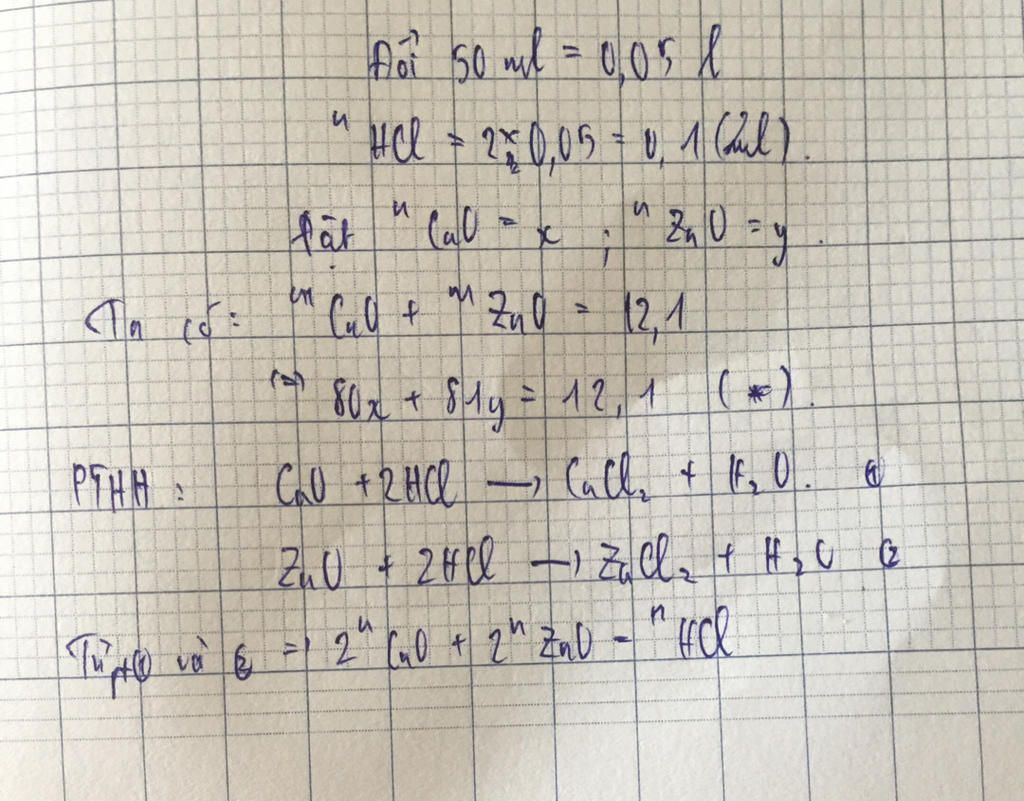 Đổi 50 ml = 0,05 l
n HCl = 2 x 0,05 = 0,1 (mol).
Đặt n CuO = x ; n ZnO = y.
Ta có: m CuO + m ZnO = 12,1
(=) 80x + 81y = 12,1 (*).
PTHH: CuO + 2HCl → CuCl₂ + H₂O. ①
ZnO + 2HCl → ZnCl₂ + H₂O ②
Từ pt ① và ② => 2 n CuO + 2 n ZnO = n HCl